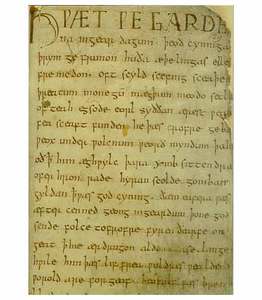 HǷÆT ǷE GARDE
na ingear dagum. þeod cyninga
þrym ge frunon huða æþelingas elle
fre medon. oft scyld scefing sceaþe
þreatum monegū mægþum meodo setla
of teah egsode eorl syððan ærest ƿear
fea sceaft funden he þæs frofre geba
ƿeox under ƿolcnum ƿeorð myndum þah
oð ꝥ him æghƿylc þara ymb sittendra
ofer hron rade hyran scolde gomban
gyldan ꝥ ƿæs god cyning. ðæm eafera ƿæs
æfter cenned geong ingeardum þone god
sende folce tofrofre fyren ðearfe on
geat ꝥ hie ær drugon aldor ase. lange
hƿile him þæs lif frea ƿuldres ƿeal
ƿorold are for geaf